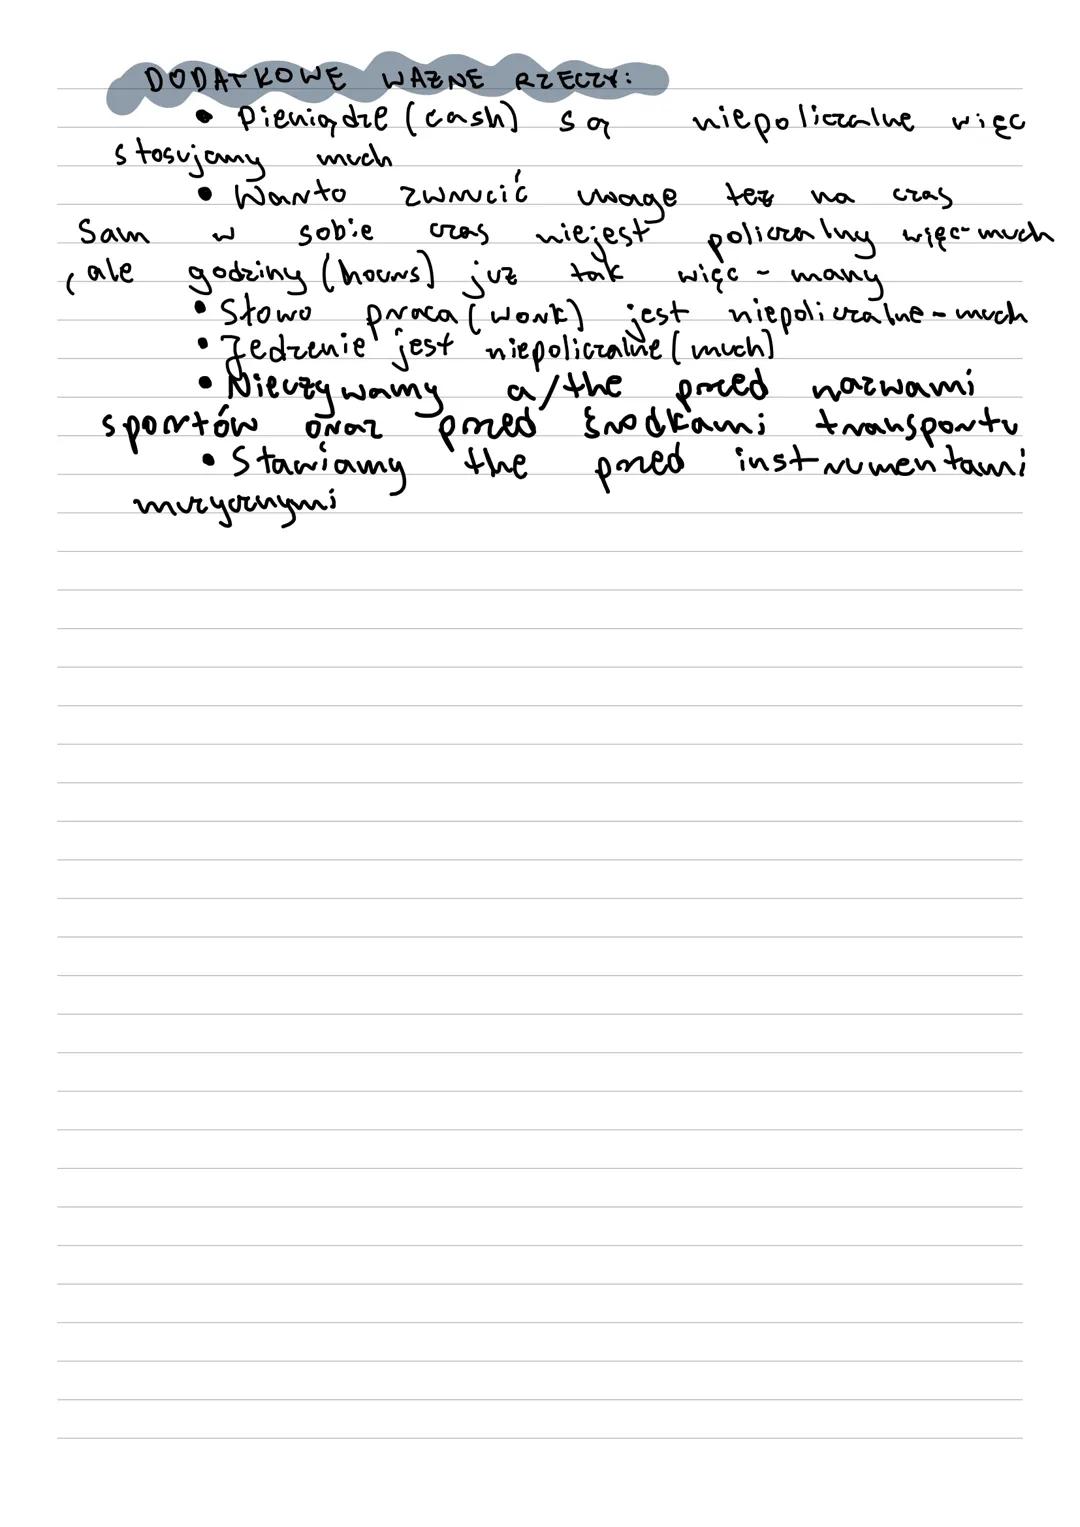 DODATKOWE WAŻNE RZECZY:
• Pieniądze (cash) są niepoliczalne więc
stosujemy much
• Warto zwrucić uwage też na czas
Sam w sobie czas niejest policzalny więc-much
, ale godziny (hours) już tak więc - many
• Słowo praca (work) jest niepoliczalne - much
• Jedzenie jest niepoliczalne (much)
• Nieużywamy a/the przed nazwami
sportów oraz przed środkami transportu
• Stawiamy the przed instrumentami
muzycznymi